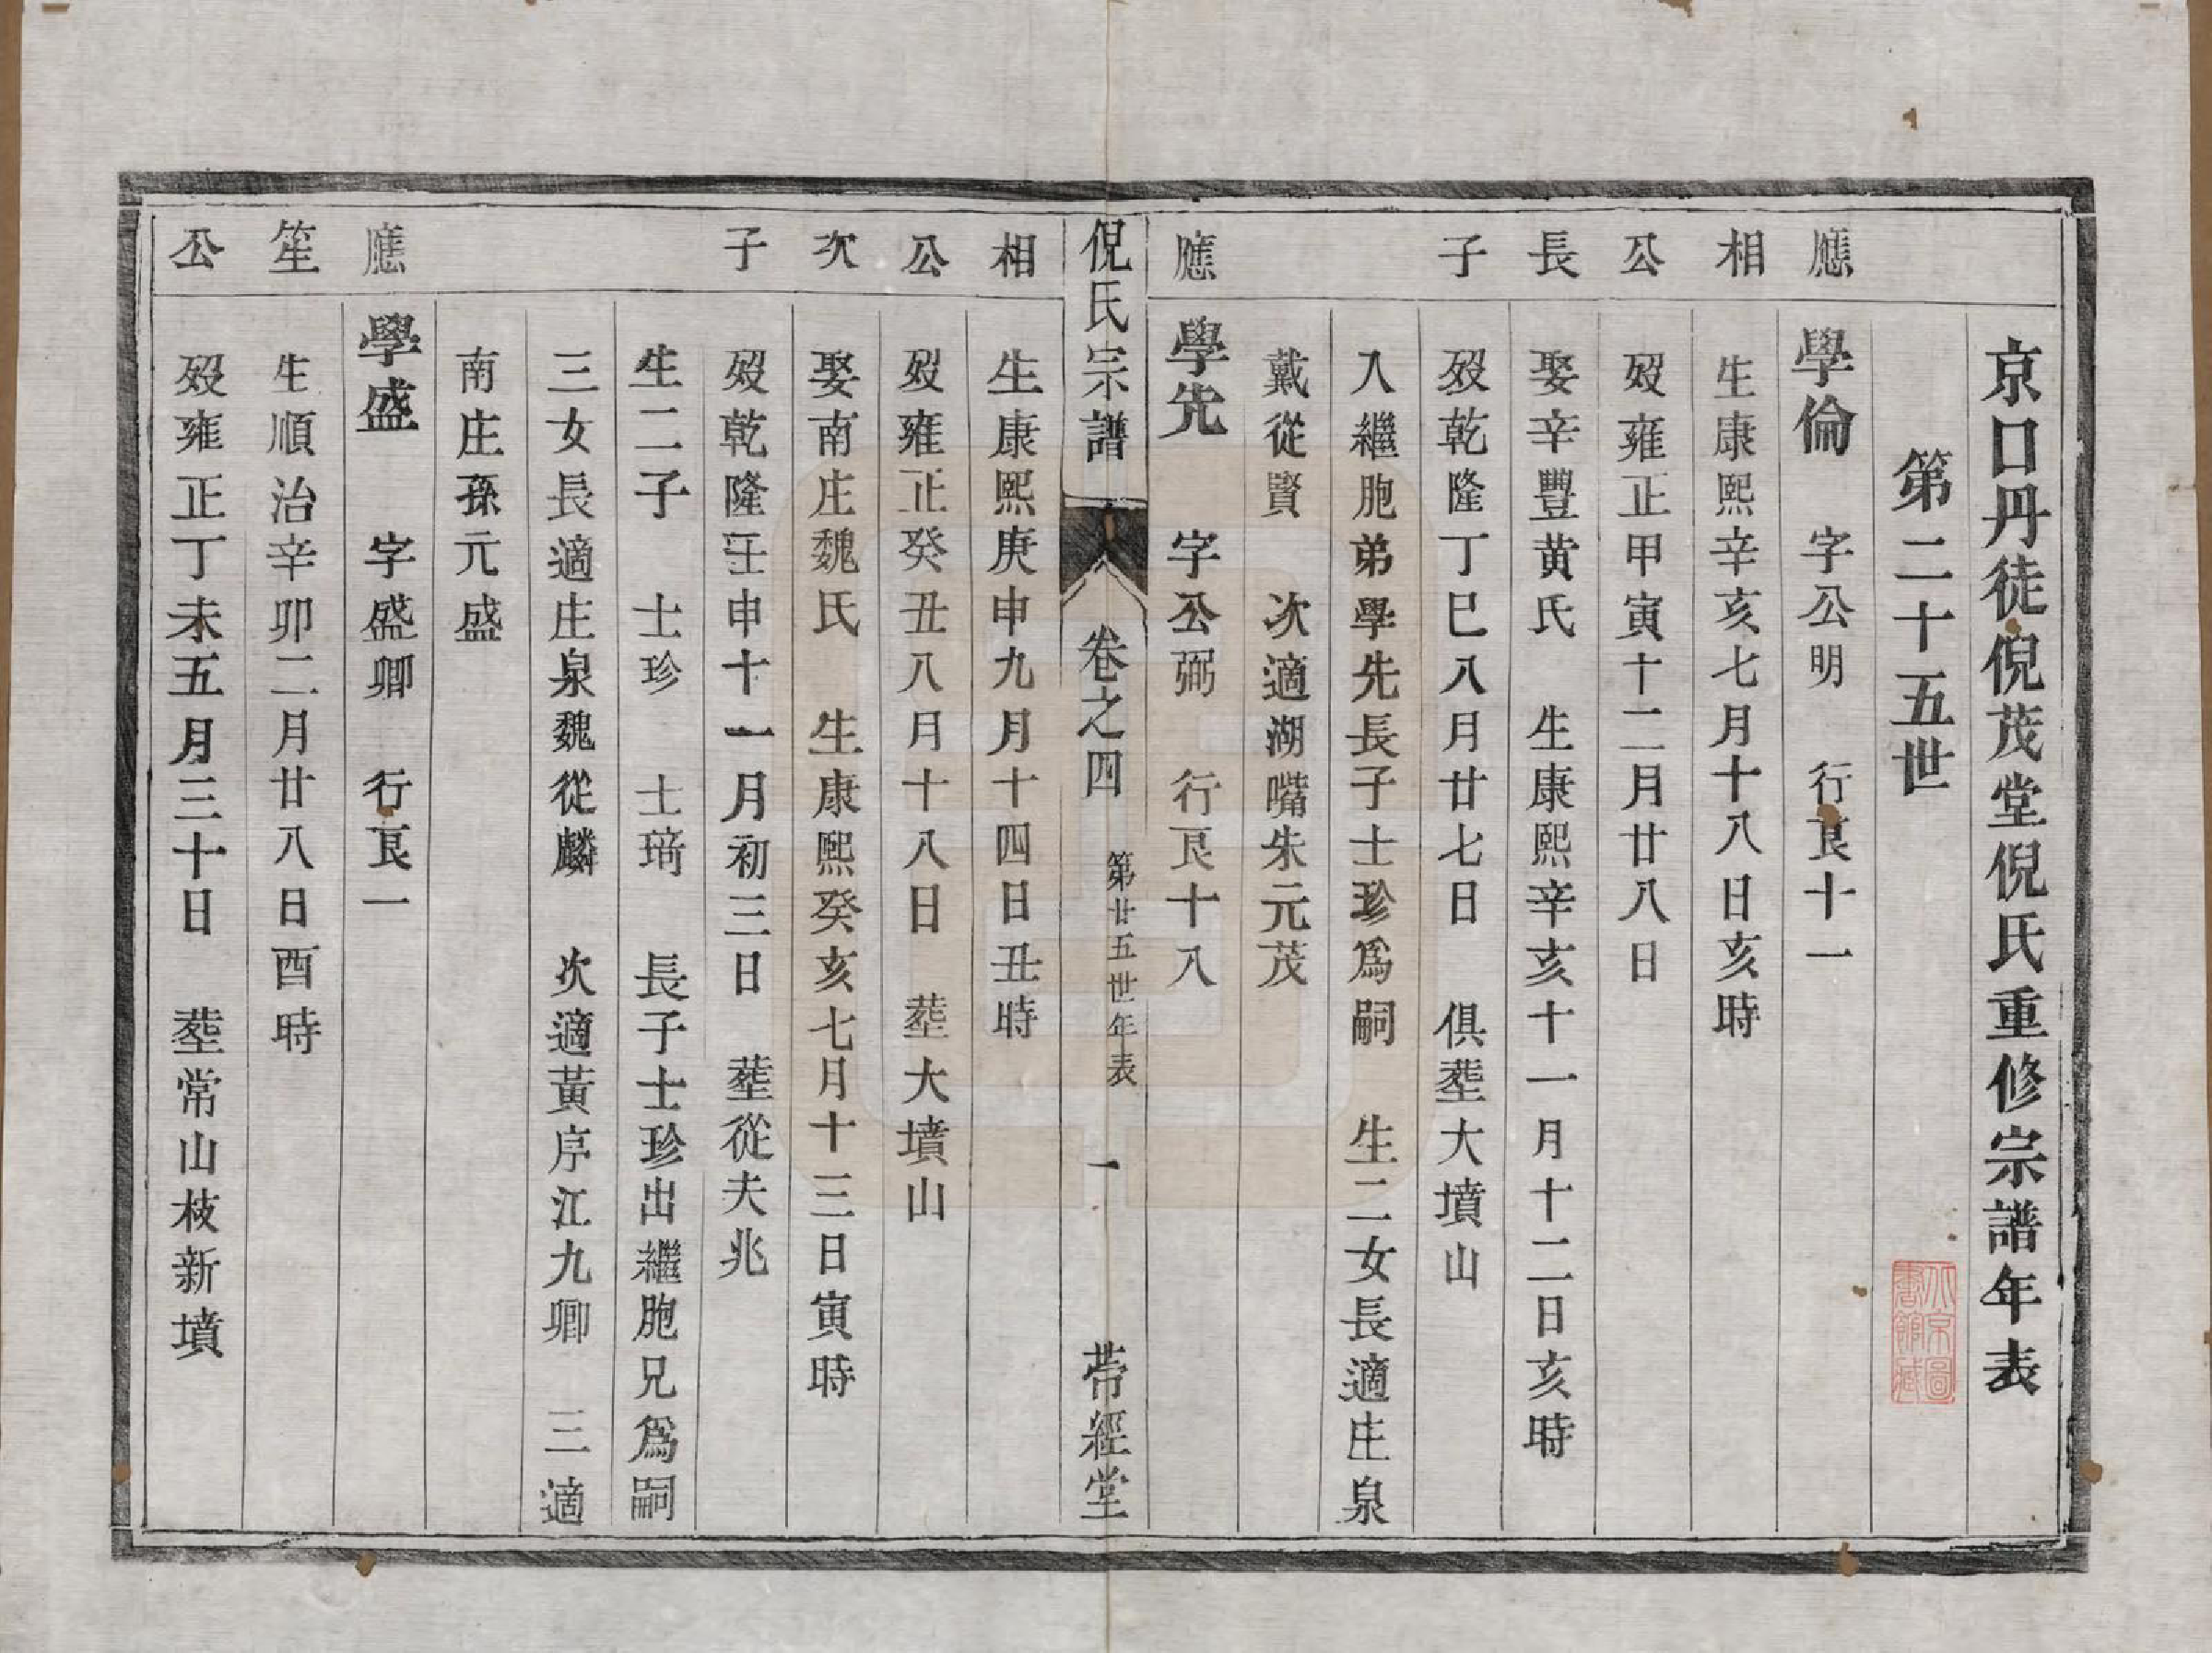 京口丹徒倪茂堂倪氏重修宗譜年表
第二十五世
北京圖書館藏
應相公長子
學倫 字公明 行艮十一
生康熙辛亥七月十八日亥時
歿雍正甲寅十二月廿八日
娶辛豐黄氏 生康熙辛亥十一月十二日亥時
歿乾隆丁巳八月廿七日 俱塟大墳山
入繼胞弟學先長子士珍爲嗣 生二女長適庄泉
戴從賢 次適湖嘴朱元茂
應相公次子
學先 字公弼 行艮十八
倪氏宗譜 卷之四 第廿五世年表 一 帶經堂
生康熙庚申九月十四日丑時
歿雍正癸丑八月十八日 塟大墳山
娶南庄魏氏 生康熙癸亥七月十三日寅時
歿乾隆壬申十一月初三日 塟從夫兆
生二子 士珍 士琦 長子士珍出繼胞兄爲嗣
三女長適庄泉魏從麟 次適黃序江九卿 三適
南庄孫元盛
應笙公
學盛 字盛卿 行艮一
生順治辛卯二月廿八日酉時
歿雍正丁未五月三十日 塟常山枝新墳